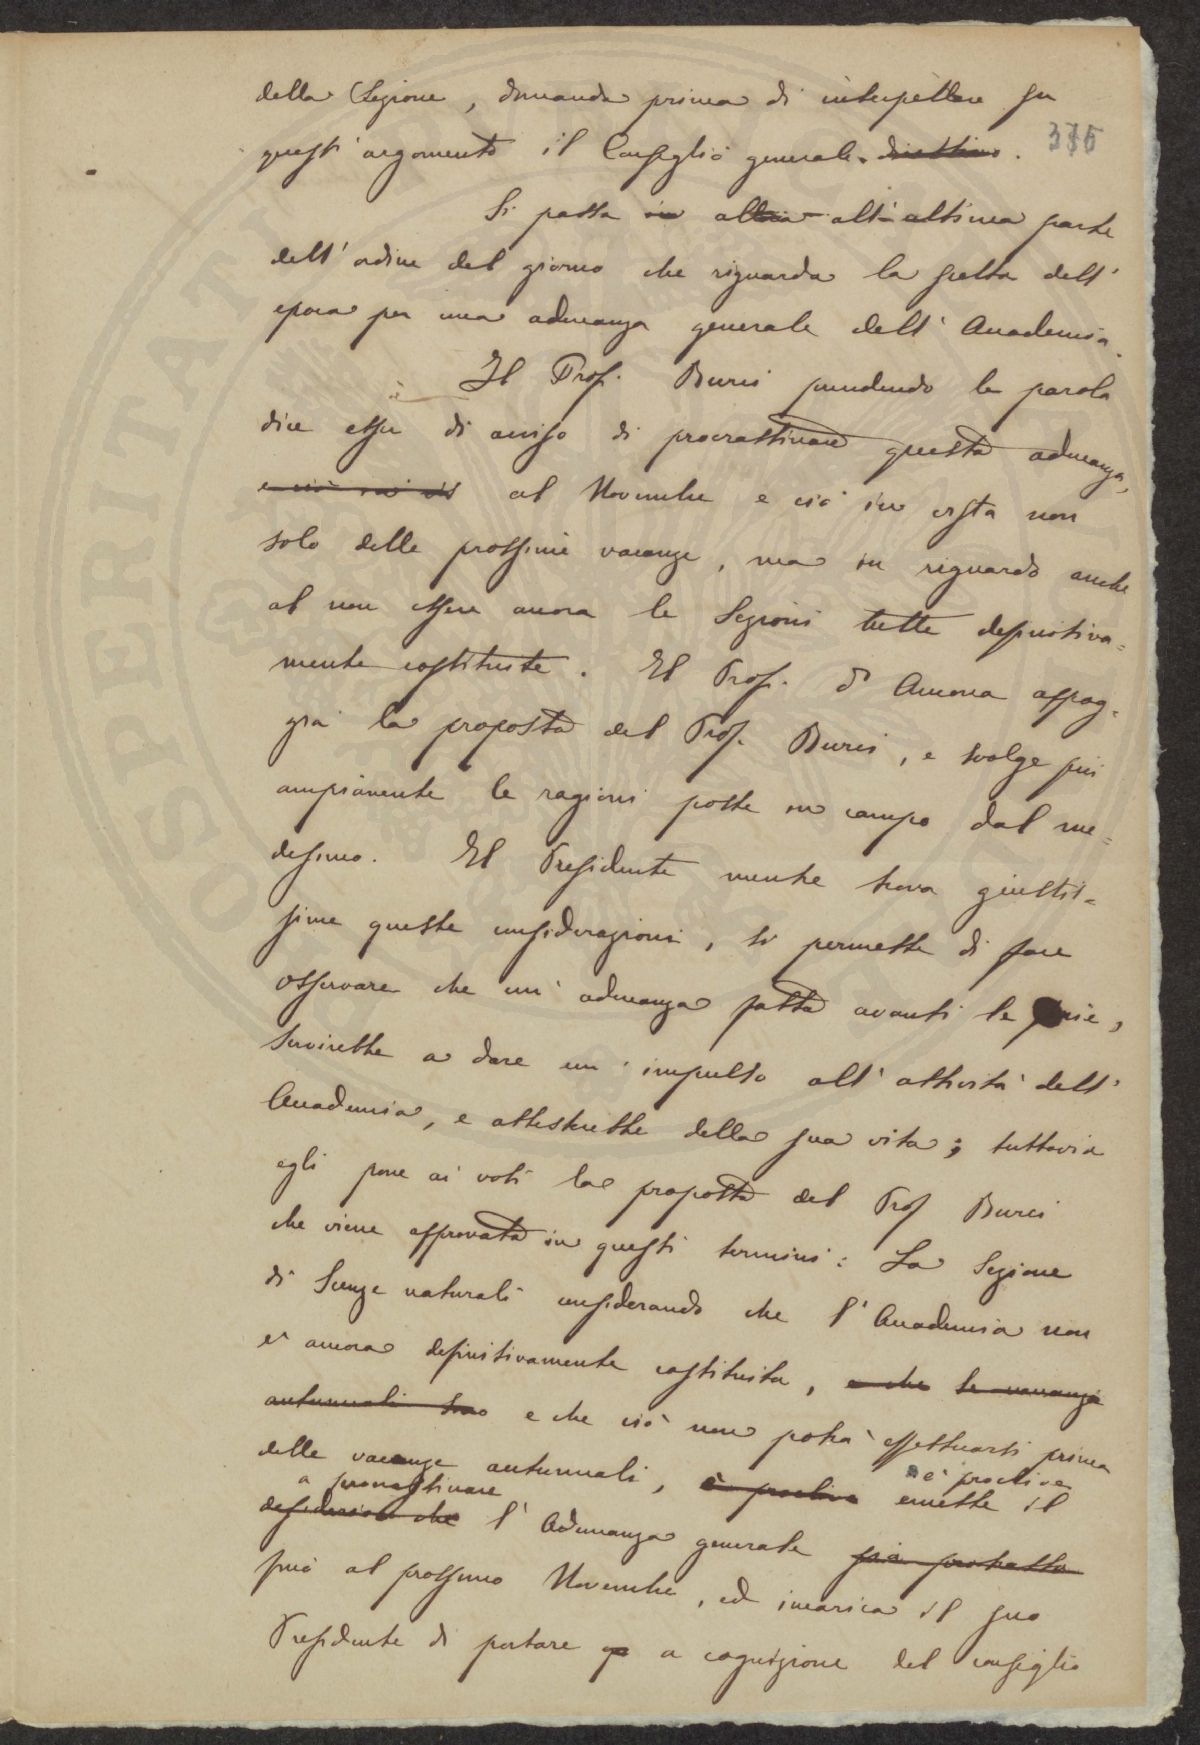 della Sezione, domanda prima di interpellare su
quest'argomento il Consiglio generale direttivo.
375
Si passa in altra all'ultima parte
dell'ordine del giorno che riguarda la scelta dell'
epoca per una adunanza generale dell'Accademia.
Il Prof. Burci prendendo la parola
dice esser di avviso di procrastinare questa adunanza,
e ciò in vis al Novembre e ciò in vista non
solo delle prossime vacanze, ma in riguardo anche
al non essere ancora le Sezioni tutte definitiva=
mente costituite. Il Prof. d'Ancona appog=
gia la proposta del Prof. Burci, e svolge più
ampiamente le ragioni poste in campo dal me=
desimo. Il Presidente mentre trova giustis=
sime queste considerazioni, si permette di fare
osservare che un'adunanza fatta avanti le ferie,
servirebbe a dare un'impulso all'attività dell'
Accademia, e attesterebbe della sua vita; tuttavia
egli pone ai voti la proposta del Prof Burci
che viene approvata in questi termini: La Sezione
di Scienze naturali considerando che l'Accademia non
è ancora definitivamente costituita, e che le vacanze
autunnali sono e che ciò non potrà effettuarsi prima
delle vacanze autunnali, è proclive è proclive emette il
a procrastinare
desiderio che l'Adunanza generale sia protratta
fino al prossimo Novembre, ed incarica il suo
Presidente di portare a cognizione del consiglio